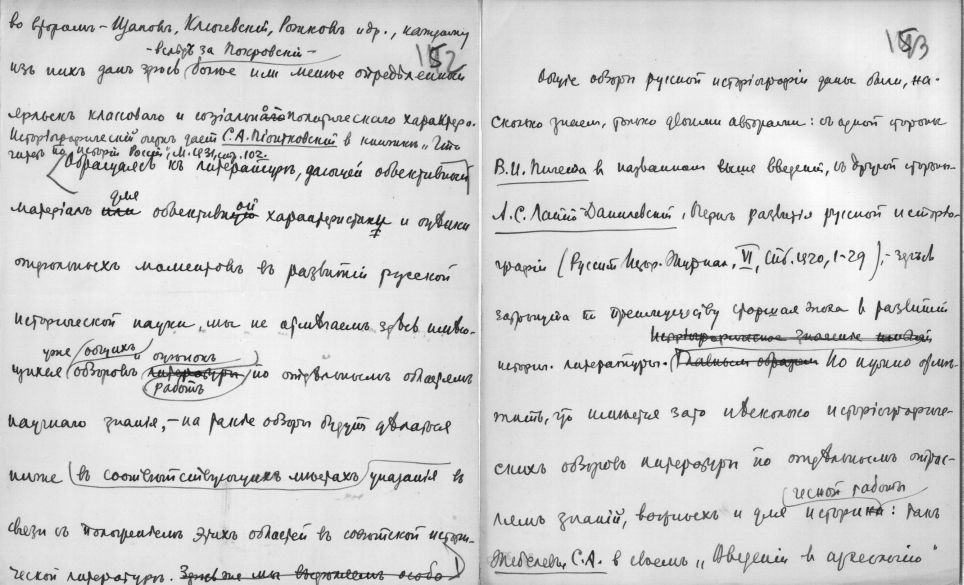 во втором – Щапов, Ключевскій, Рожков и др., каждому
– вслѣд за Покровскій –
152
изъ них дан здѣсь более или менее определенный
ярлык классоваго и соціальнаго политическаго характера.
Исторіографический очерк дает С.А. Піонтковский в книжкѣ
по исторіи Россіи", М. 1931, стр. 102.
Обращаясь къ литературѣ, дающей объективный
матеріалъ для или объективной характеристики и оцѣнки
отдѣльных моментовъ въ развитіи русской
исторической науки, мы не отмѣчаемъ здѣсь имѣю-
уже общихъ и оцѣнокъ
щихся обзоровъ литературы работъ по отдѣльнымъ областямъ
научнаго знанія, – на такіе обзоры будут дѣлаться
ниже въ соотвѣтствующихъ мѣстахъ указанія въ
связи съ положеніемъ этихъ областей въ совѣтской истори-
ческой литературѣ. Здѣсь же мы выдѣляемъ особо
153
Общіе обзоры русской исторіографіи даны были, на-
сколько знаем, только двоими авторами: съ одной стороны
В.И. Пичета в названном выше введеніи, съ другой стороны
А.С. Лаппо-Данилевский, Очерк развитія русской исторіо-
графіи (Русскій Истор. Журнал, VI, Спб. 1920, 1-29), – здѣсь
затронута по преимуществу старшая эпоха в развитіи
Исторіографическое значение
истори. литературы. Главным образом Но нужно отмѣ-
тить, что имѣется зато нѣсколько исторіографиче-
ских обзоров литературы по отдѣльным отрас-
ческой работы
лям знаній, важных и для истори: так
Жебелев, С.А. в своем „Введеніи в археологію"